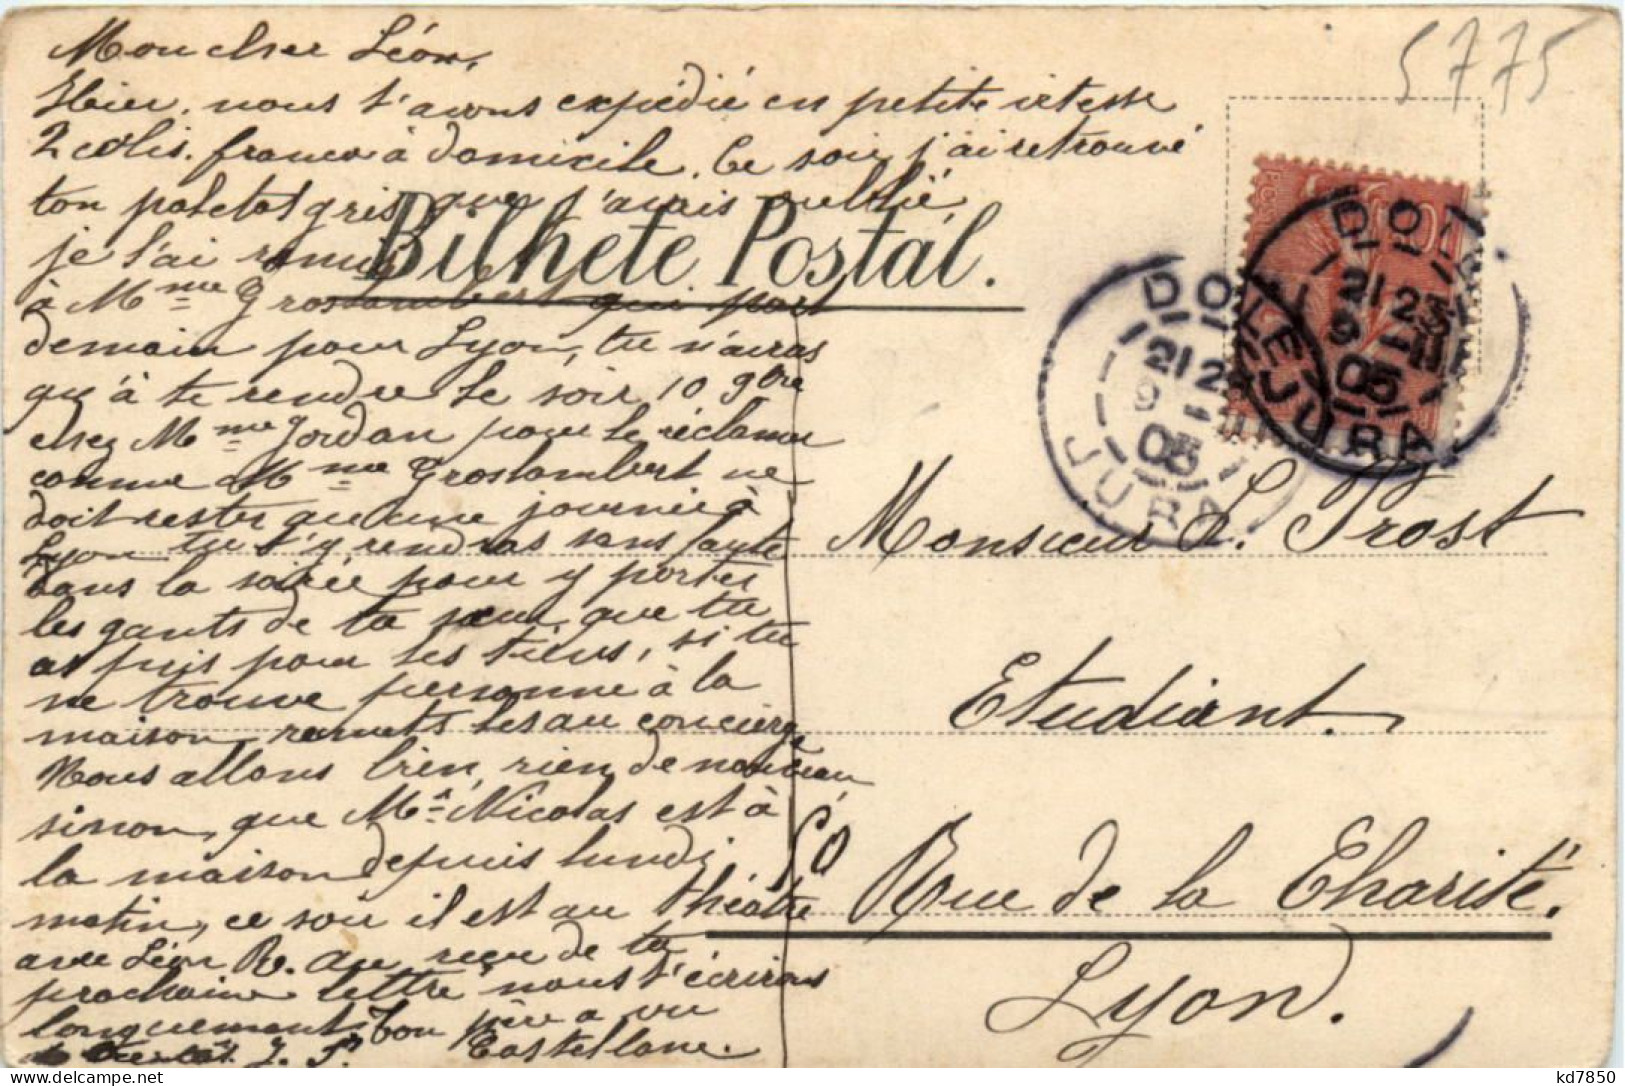 5775
Mon cher Léon,
Hier, nous t'avons expédié en petite vitesse
2 colis. franco à domicile. Ce soir j'ai retrouvé
ton paletot gris que j'avais oublié
je l'ai remis
Bilhete Postal.
à Mme Groslambert qui part
demain pour Lyon, tu n'auras
qu'à te rendre le soir 10 9bre
chez Mme Jordan pour le réclamer
comme Mme Groslambert ne
doit rester qu'une journée à
Lyon tu t'y rendras sans faute
dans la soirée pour y porter
les gants de ta sœur que tu
as pris pour les tiens, si tu
ne trouve personne à la
maison, remets les au concierge
Nous allons bien, rien de nouveau
sinon, que Mr Nicolas est à
la maison depuis lundi
matin, ce soir il est au théâtre
avec Léon R. au reçu de ta
prochaine lettre nous t'écrirons
longuement. Ton père a vu
J. P. Castellane.
DOLE
21 23
9 11
05
JURA
DOLE
21 23
9
05
JURA
POSTES
10
Monsieur L. Prost
Etudiant.
50 Rue de la Charité.
Lyon.
kd7850